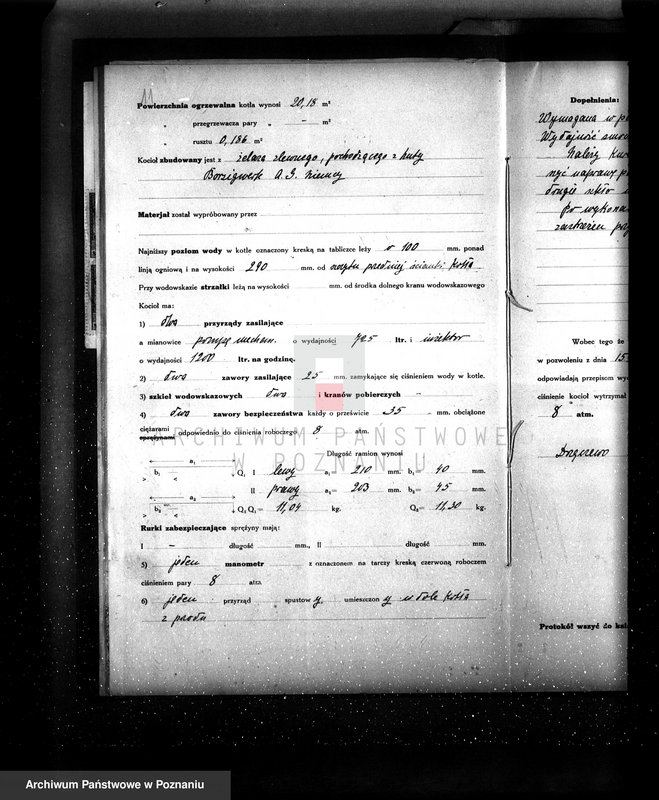 11
Powierzchnia ogrzewalna kotła wynosi 20,18 m²
„ przegrzewacza pary „ – m²
„ rusztu 0,186 m²
Kocioł zbudowany jest z żelaza zlewnego, pochodzącego z huty
Borsigwerk A.G. Niemcy
Materjał został wypróbowany przez
Najniższy poziom wody w kotle oznaczony kreską na tabliczce leży o 100 mm. ponad
linją ogniową i na wysokości 290 mm. od przedniej ścianki kotła
Przy wodowskazie strzałki leżą na wysokości mm. od środka dolnego kranu wodowskazowego
Kocioł ma:
1) dwa przyrządy zasilające
a mianowicie pompę mechan. o wydajności 725 ltr. i inżektor
o wydajności 1200 ltr. na godzinę.
2) dwa zawory zasilające 25 mm. zamykające się ciśnieniem wody w kotle.
3) szkieł wodowskazowych dwa i kranów pobierczych –
4) dwa zawory bezpieczeństwa każdy o prześwicie 35 mm. obciążone
ciężarami
sprężynami odpowiednio do ciśnienia roboczego 8 atm.
Długość ramion wynosi
a₁
b₁ Q₁ I lewy a₁= 210 mm. b₁= 40 mm.
II prawy a₂= 203 mm. b₂= 45 mm.
a₂
b₂ Q₂ Q₁= 11,04 kg. Q₂= 11,30 kg.
Rurki zabezpieczające sprężyny mają:
I – długość mm., II długość mm.
5) jeden manometr z oznaczonem na tarczy kreską czerwoną roboczem
ciśnieniem pary 8 atm.
6) jeden przyrząd spustowy umieszczony w dole kotła
z przodu
Dopełnienia:
Wymagana w p
Wydajność
Należy
drugie szkło
Po wykona
Wobec tego że
w pozwoleniu z dnia 15
odpowiadają przepisom wy
ciśnienie kocioł wytrzymał
8 atm.
Protokół wszyć do
ARCHIWUM PAŃSTWOWE
W POZNANIU
Archiwum Państwowe w Poznaniu